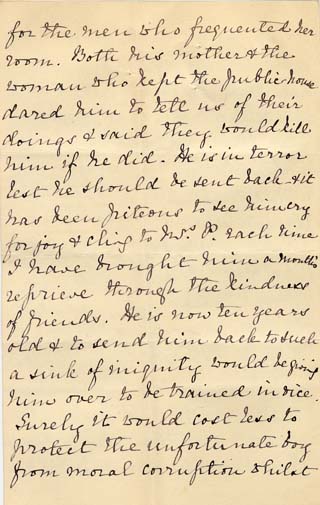 for the men who frequented her
room. Both his mother & the
woman who kept the public house
dared him to tell us of their
doings & said they would kill
him if he did. He is in terror
lest he should be sent back & it
has been piteous to see him cry
for joy & cling to Mrs. P. each time
I have brought him a month's
reprieve through the kindness
of friends. He is now ten years
old & to send him back to such
a sink of iniquity would be giving
him over to be trained in vice.
Surely it would cost less to
protect the unfortunate boy
from moral corruption whilst